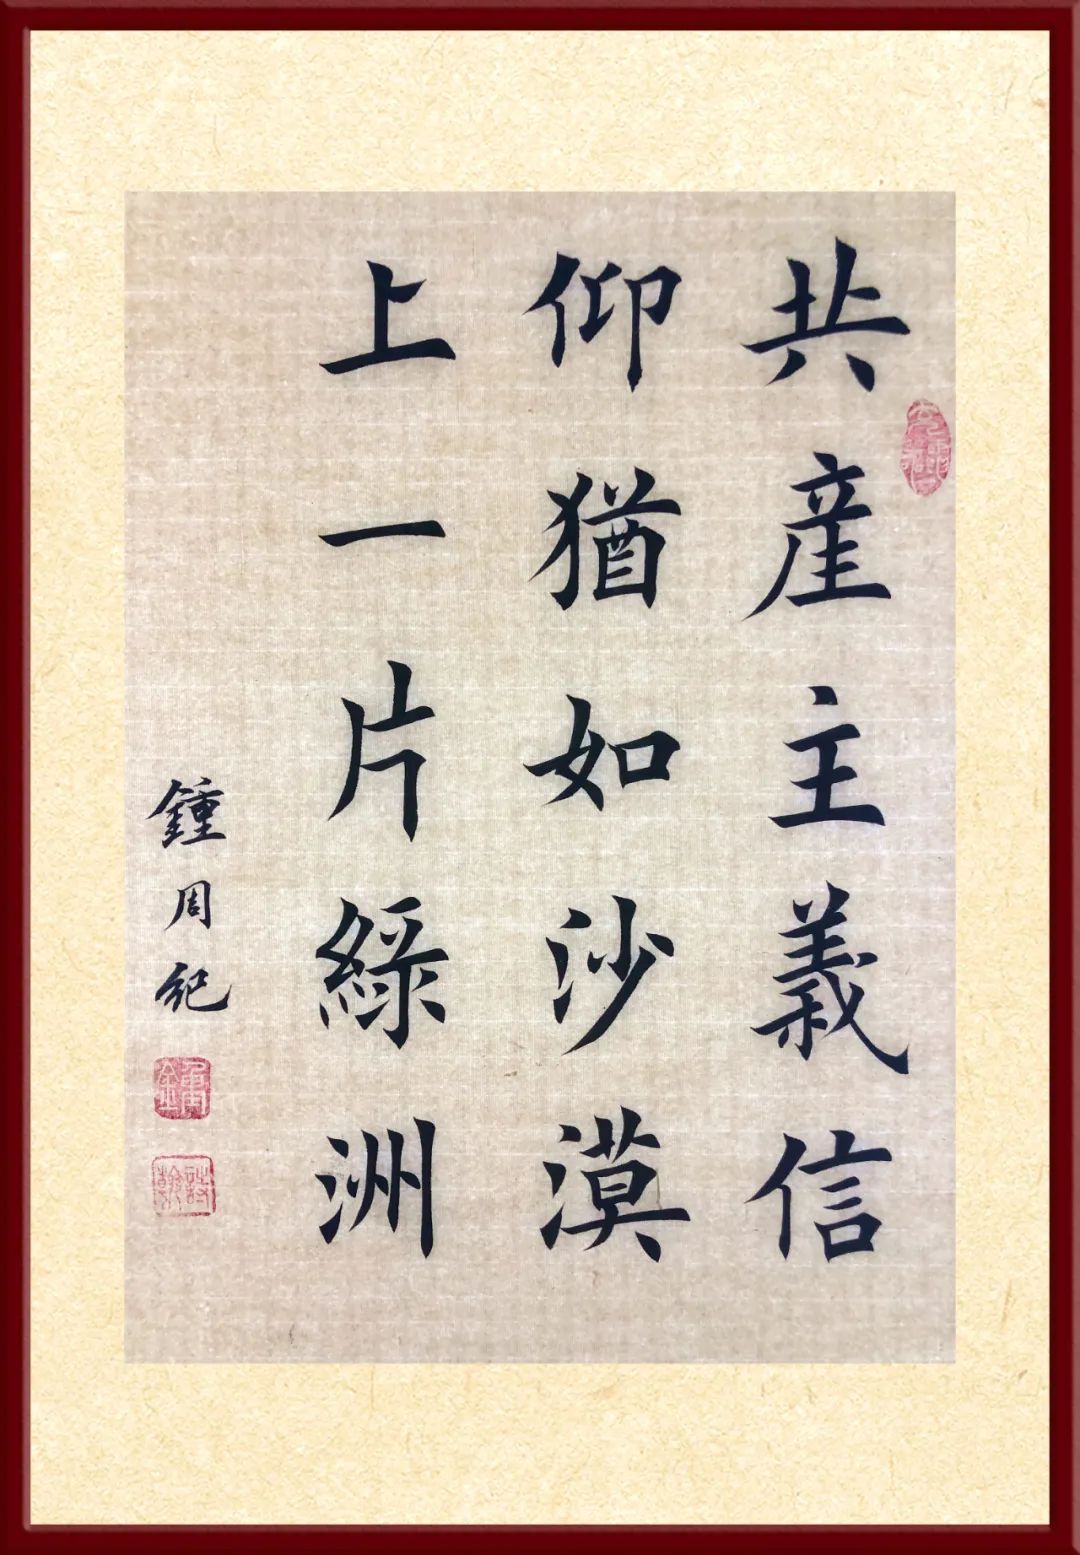 共産主義信
仰猶如沙漠
上一片綠洲
鍾周紀